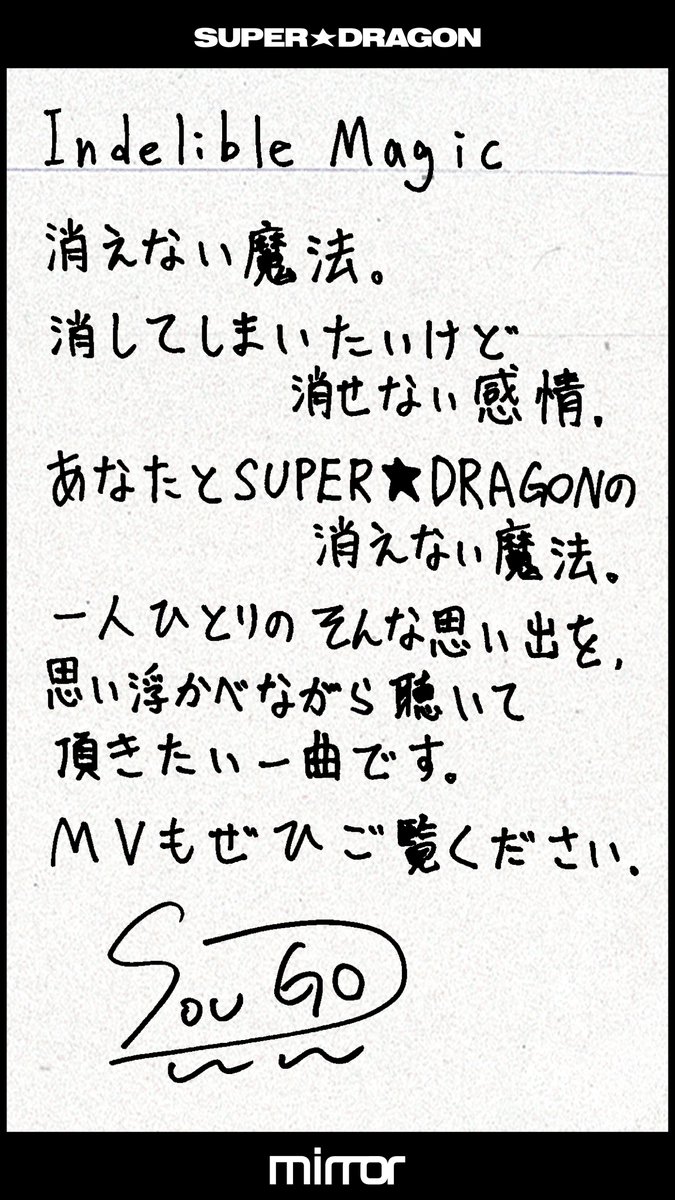 SUPER★DRAGON
Indelible Magic
消えない魔法。
消してしまいたいけど
消せない感情。
あなたとSUPER★DRAGONの
消えない魔法。
一人ひとりのそんな思い出を、
思い浮かべながら聴いて
頂きたい一曲です。
MVもぜひご覧ください。
SOUGO
mirror